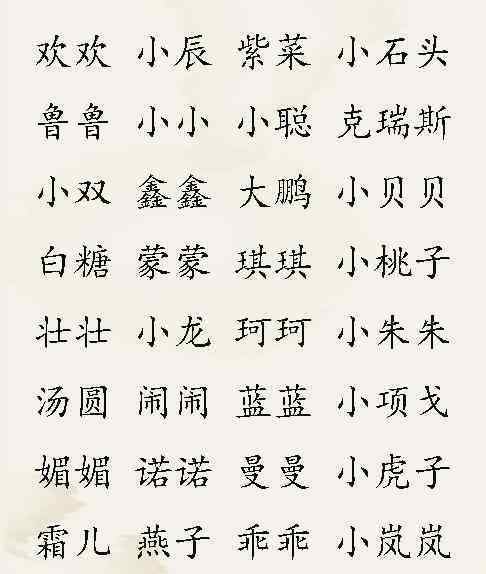 欢欢 小辰 紫菜 小石头
鲁鲁 小小 小聪 克瑞斯
小双 鑫鑫 大鹏 小贝贝
白糖 蒙蒙 琪琪 小桃子
壮壮 小龙 珂珂 小朱朱
汤圆 闹闹 蓝蓝 小项戈
媚媚 诺诺 曼曼 小虎子
霜儿 燕子 乖乖 小岚岚